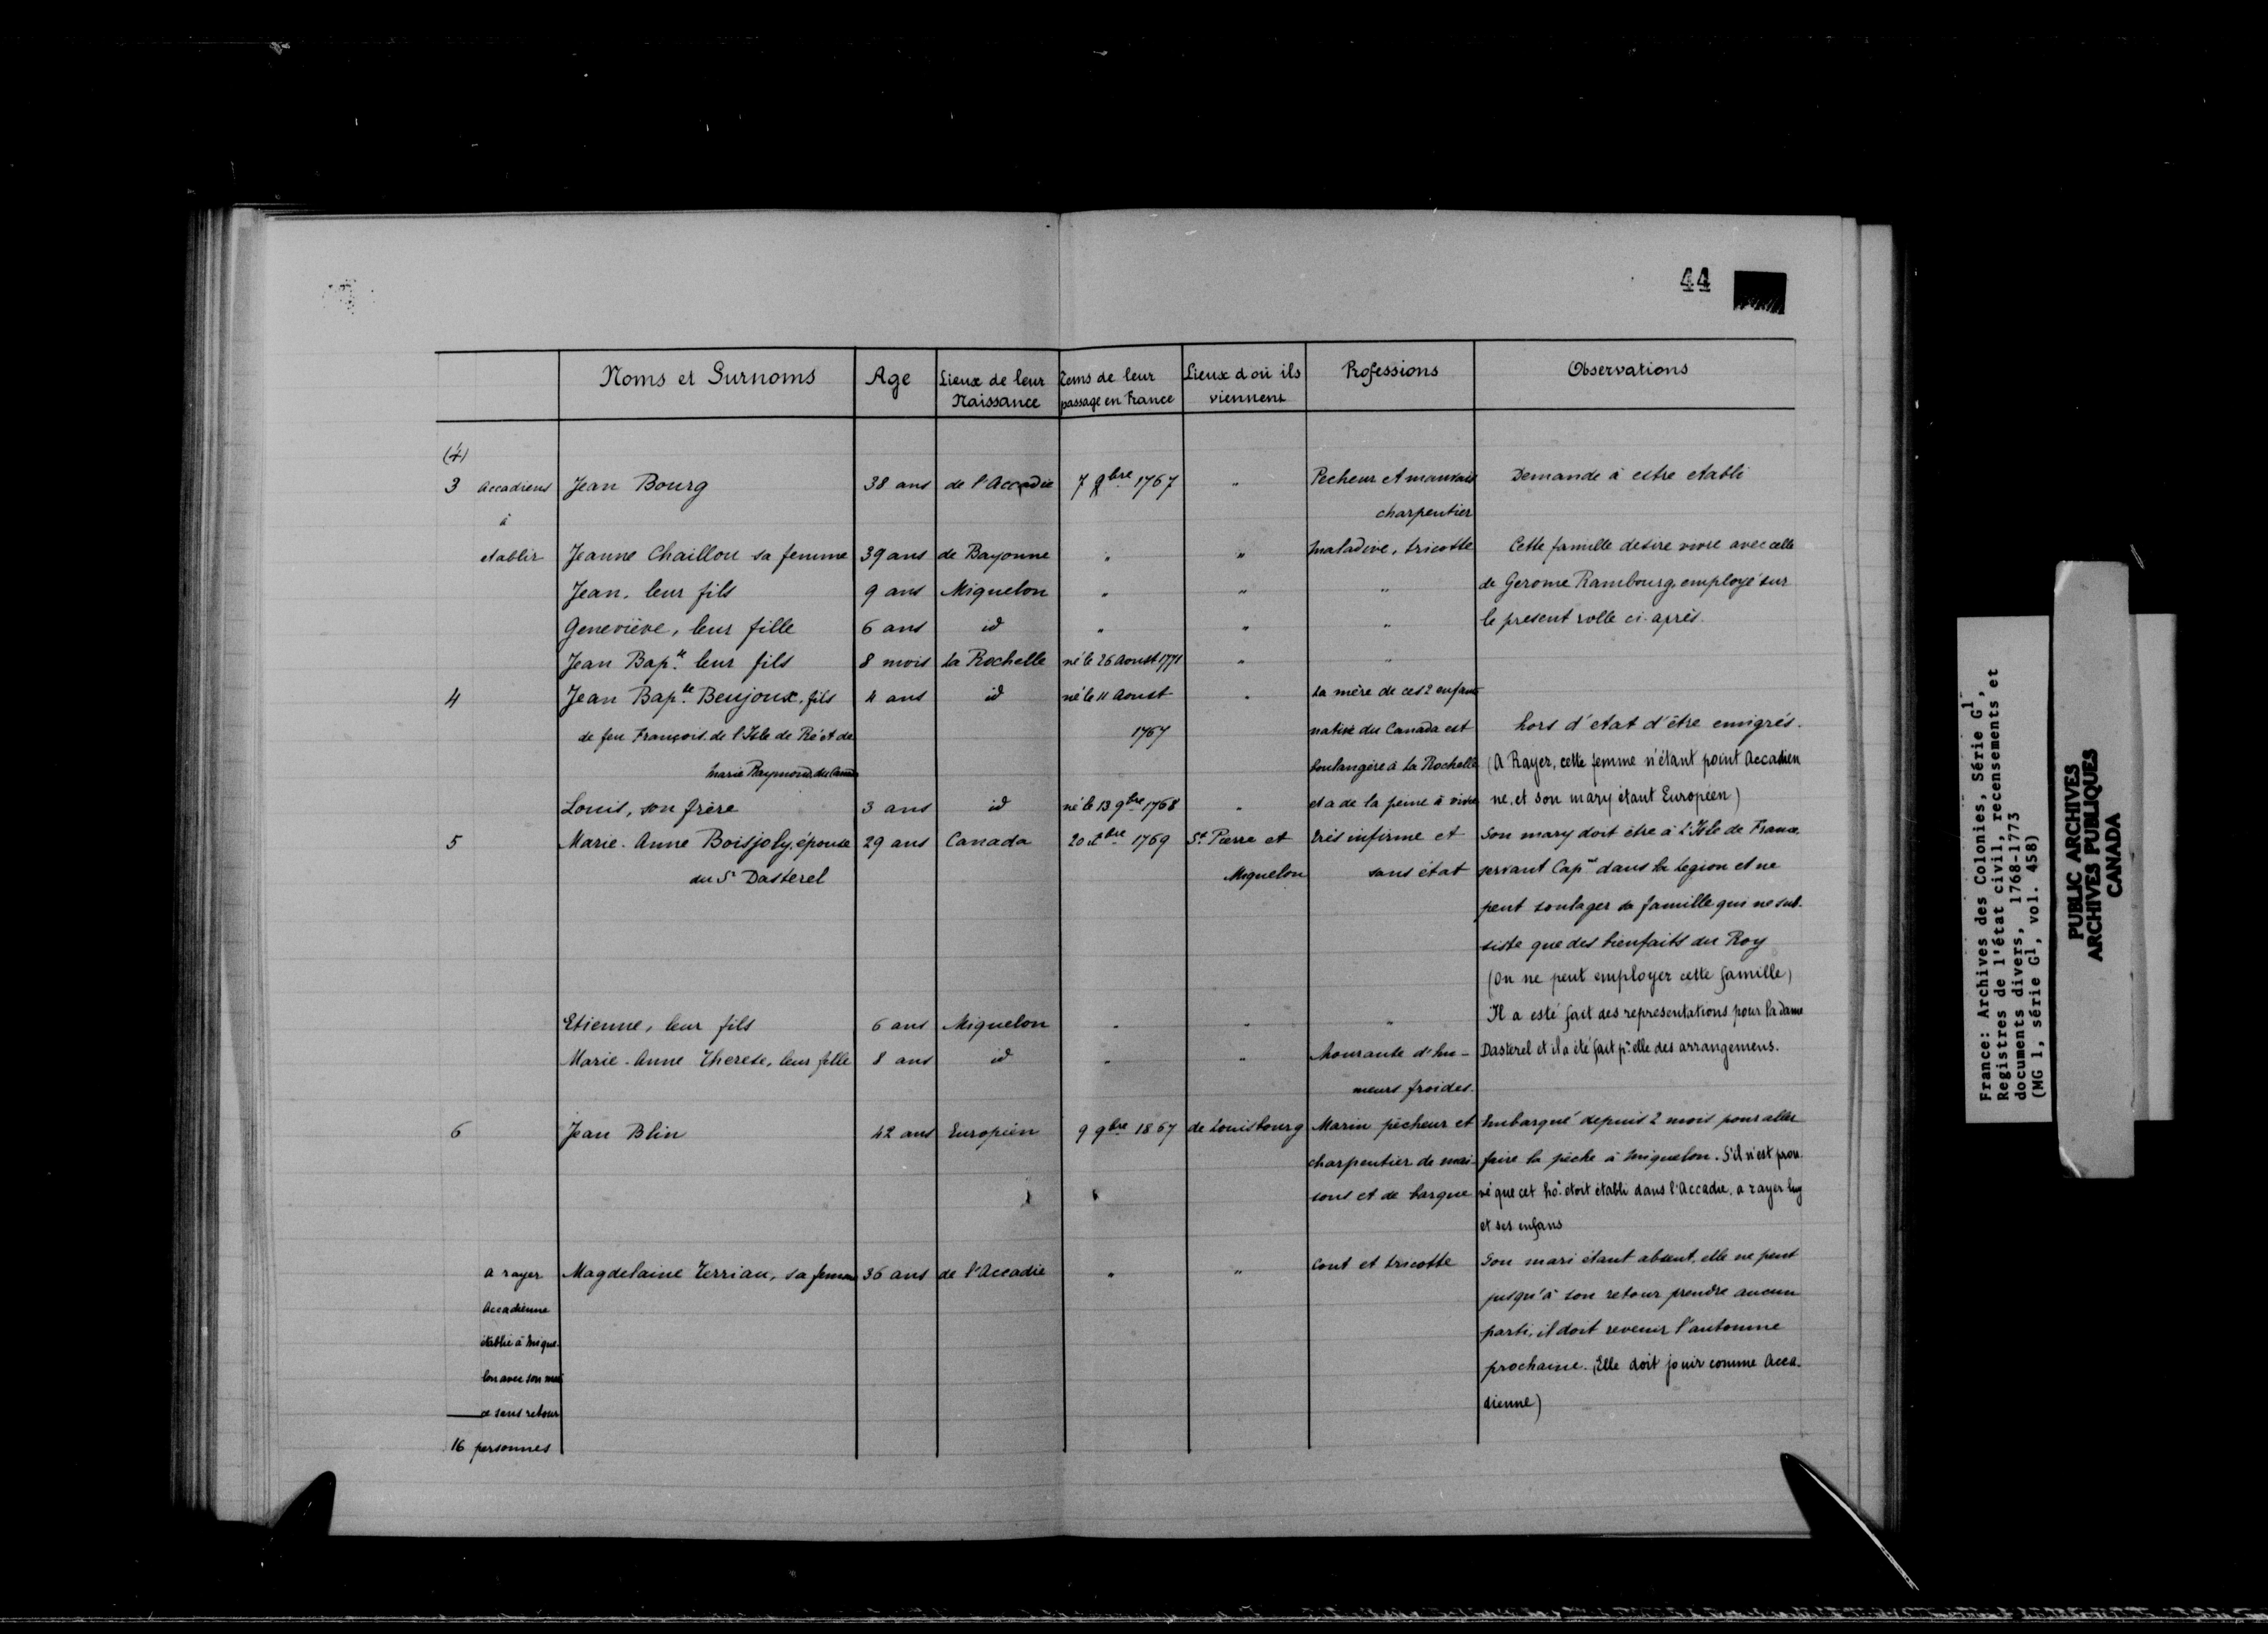 44
Noms et Surnoms | Age | Lieux de leur Naissance | Tems de leur passage en France | Lieux d'où ils viennent | Professions | Observations
(4)
3 Accadiens Jean Bourg | 38 ans | de l'Accadie | 7 9bre 1767 | " | Pecheur et mauvais | Demande à estre etabli
à | charpentier
etablir Jeanne Chaillou sa femme | 39 ans | de Bayonne | " | " | Maladive, tricotte | Cette famille desire vivre avec celle
Jean, leur fils | 9 ans | Miquelon | " | " | " | de Gerome Rambourg, employé sur
Geneviève, leur fille | 6 ans | id | " | " | " | le present rolle ci-après.
Jean Bapte leur fils | 8 mois | La Rochelle | né le 26 Aoust 1771 | " | "
4 Jean Bapte Beujoux, fils | 4 ans | id | né le 11 Aoust | " | La mère de ces 2 enfans
de feu François de l'Isle de Ré et de | 1767 | native du Canada est | hors d'etat d'être emigrés.
Marie Raymond, du Canada | boulangère à La Rochelle | (A Rayer, cette femme n'étant point Accadien
Louis, son frère | 3 ans | id | né le 13 9bre 1768 | " | et a de la peine à vivre | ne, et son mary étant Européen)
5 Marie-Anne Boisjoly, épouse | 29 ans | Canada | 20 xbre 1769 | St Pierre et | très infirme et | Son mary doit être à l'Isle de France
du Sr Dasterel | Miquelon | sans état | servant Capne dans la Legion et ne
peut soulager sa famille qui ne sub-
siste que des bienfaits du Roy
(On ne peut employer cette famille)
Etienne, leur fils | 6 ans | Miquelon | " | " | " | Il a esté fait des representations pour la dame
Marie-Anne Therese, leur fille | 8 ans | id | " | " | Mourante d'hu- | Dasterel et il a été fait pr elle des arrangemens.
meurs froides.
6 Jean Blin | 42 ans | Européen | 9 9bre 1867 | de Louisbourg | Marin pêcheur et | Embarqué depuis 2 mois pour aller
charpentier de mai- | faire la pêche à Miquelon. S'il n'est prou
sons et de barque | vé que cet ho. etoit établi dans l'Accadie, a rayer luy
et ses enfans
a rayer Magdelaine Terriau, sa femme | 36 ans | de l'Accadie | " | " | Cout et tricotte | Son mari étant absent, elle ne peut
Accadienne | jusqu'à son retour prendre aucun
établie à Mique- | parti, il doit revenir l'automne
lon avec son mari | prochaine. (Elle doit jouir comme Acca-
sans retour | dienne)
16 personnes
France: Archives des Colonies, Série G1,
Registres de l'état civil, recensements et
documents divers, 1768-1773
(MG 1, série G1, vol. 458)
PUBLIC ARCHIVES
ARCHIVES PUBLIQUES
CANADA